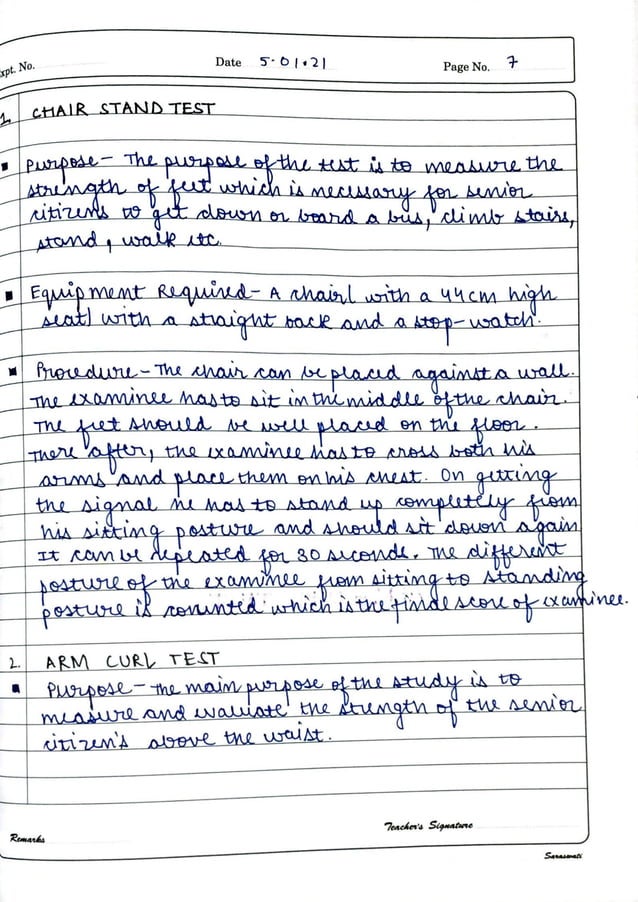 Expt. No.
Date 5.01.21
Page No. 7
1. CHAIR STAND TEST
Purpose - The purpose of the test is to measure the
strength of feet which is necessary for senior
citizens to get down or board a bus, climb stairs,
stand, walk etc.
Equipment Required - A chair with a 44cm high
seat) with a straight back and a stop-watch.
Procedure - The chair can be placed against a wall.
The examinee has to sit in the middle of the chair.
The feet should be well placed on the floor.
There after, the examinee has to cross both his
arms and place them on his chest. On getting
the signal he has to stand up completely from
his sitting posture and should sit down again
It can be repeated for 30 seconds. The different
posture of the examinee from sitting to standing
posture is conunted which is the score of examinee.
2. ARM CURL TEST
Purpose - The main purpose of the study is to
measure and evaluate the strength of the senior
citizen's above the waist.
Teacher's Signature
Remarks
Saraswati